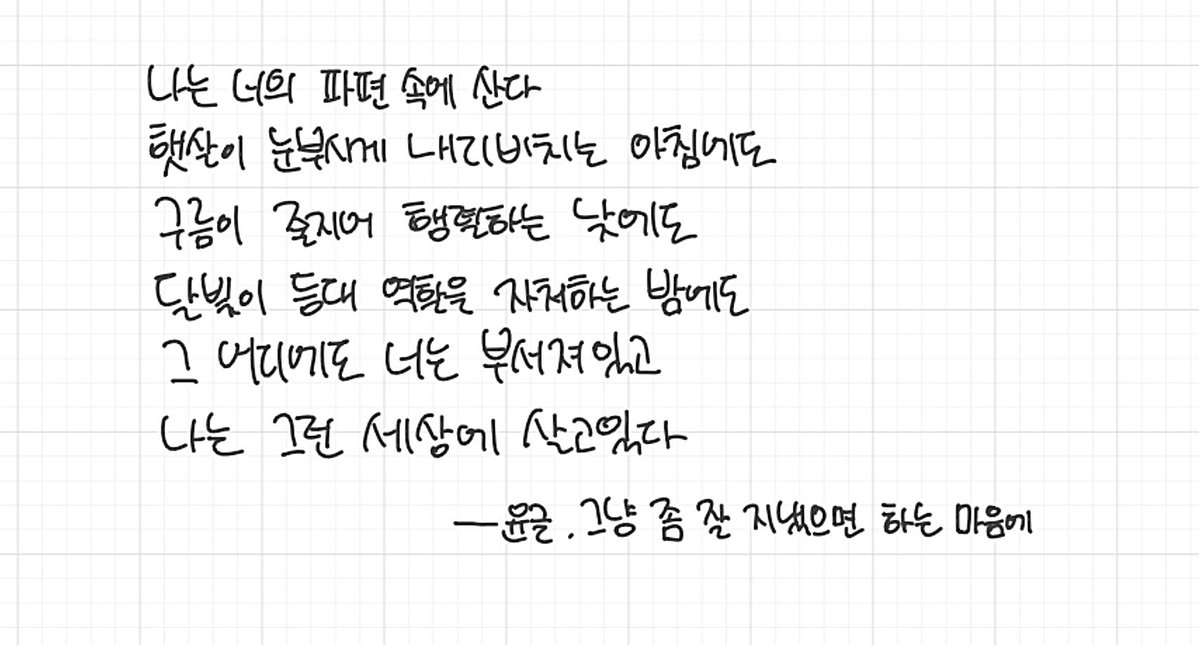 나는 너의 파편 속에 산다
햇살이 눈부시게 내리비치는 아침에도
구름이 줄지어 행렬하는 낮에도
달빛이 등대 역할을 자처하는 밤에도
그 어디에도 너는 부서져있고
나는 그런 세상에 살고있다
—윤글. 그냥 좀 잘 지냈으면 하는 마음에